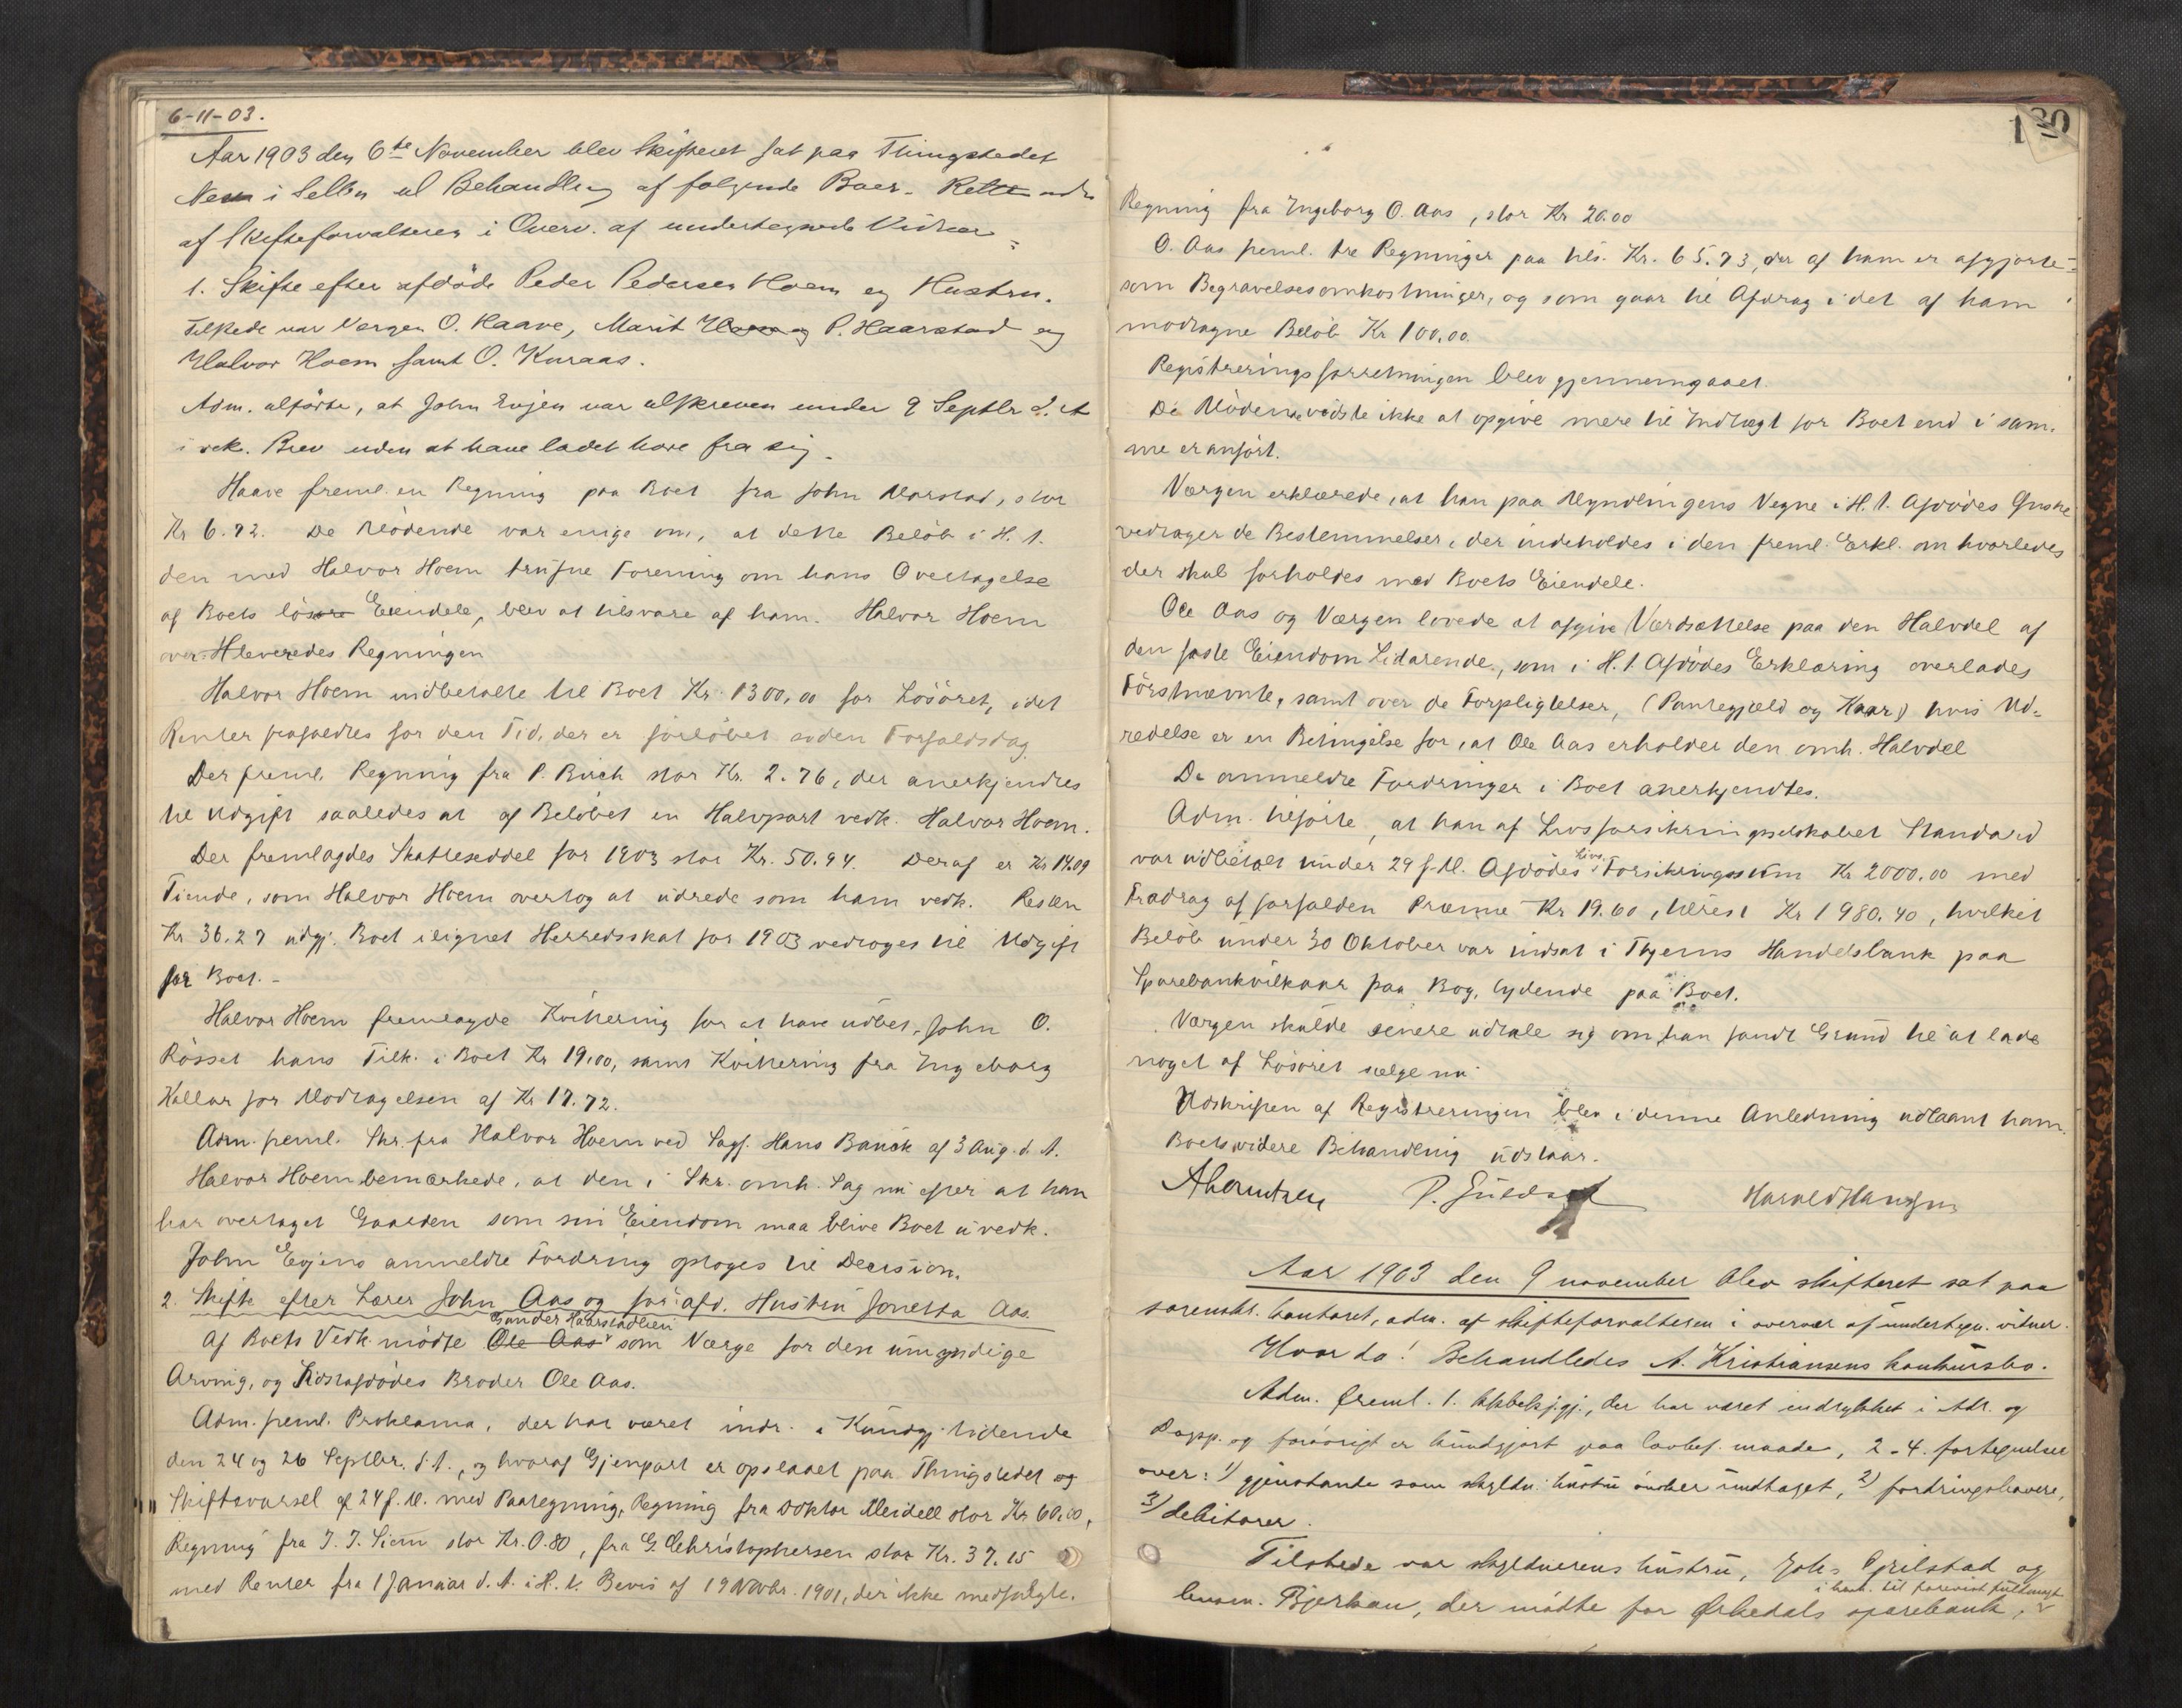 6-11-03.
Aar 1903 den 6te November blev Skifteret sat paa Thingstedet
i Selbu til Behandling af følgende Boer. Retten adm.
af Skifteforvalteren i Overv. af undertegnede Vidner:
1. Skifte efter afdøde Peder Pedersen Hoem og Hustru.
Tilstede var Vergen O. Haave, Marit P. Haarstad og
Halvor Hoem samt O. Kuraas.
Adm. anførte, at John Evjen var tilskreven under 9 Septbr d. A.
i rek. Brev uden at have ladet høre fra sig.
Haave freml. en Regning paa Boet fra John Morstad, stor
Kr 6.72. De Mødende var enige om, at dette Beløb i H. t.
den med Halvor Hoem trufne Forening om hans Overtagelse
af Boets løsøre Eiendele, blev at tilsvare af ham. Halvor Hoem
overleveredes Regningen
Halvor Hoem indbetalte til Boet Kr. 1300,00 for Løsøret, idet
Renter frafaldtes for den Tid, der er forløbet siden Forfaldsdag.
Der freml. Regning fra P. Birch stor Kr. 2.76, der anerkjendtes
til Udgift saaledes at af Beløbet en Halvpart vedk. Halvor Hoem.
Der fremlagdes Skatteseddel for 1903 stor Kr. 50.94. Deraf er Kr 14.09
Tiende, som Halvor Hoem overtog at udrede som ham vedk. Resten
Kr 36.27 udgj. Boet ilignet Herredsskat for 1903 vedtoges til Udgift
for Boet. -
Halvor Hoem fremlagde Kvittering for at have udbet. John O.
Rösset hans Tilk. i Boet Kr 19,00, samt Kvittering fra Ingeborg
Kallar for Modtagelsen af Kr 17.72.
Adm. freml. Skr. fra Halvor Hoem ved Sagf. Hans Bauck af 3 Aug. d. A.
Halvor Hoem bemærkede, at den i Skr. omh. Sag nu efter at han
har overtaget Gaarden som sin Eiendom maa blive Boet uvedk.
John Evjens anmeldte Fordring optoges til Decision.
2. Skifte efter Lærer John Aas og før afd. Hustru Jonetta Aas.
Gunder Haarstadlien
Af Boets Vedk mødte Ole Aas som Værge for den umyndige
Arving, og Sidstafdødes Broder Ole Aas.
Adm. freml. Proklama, der har været indr. i Kundgj. tidende
den 24 og 26 Septbr. d. A., og hvoraf Gjenpart er opslaaet paa Thingstedet og
Skiftevarsel af 24 f. M. med Paategning, Regning fra Doktor Meidell stor Kr 60,00,
Regning fra J. J. Siem stor Kr. 0.80, fra G. Christophersen stor Kr. 37.15
med Renter fra 1 Januar d. A. i H. t. Bevis af 19 Novbr. 1901, der ikke medfulgte.
130
Regning fra Ingeborg O. Aas, stor Kr 20.00
O. Aas freml. tre Regninger paa tils. Kr. 65.73, der af ham er afgjorte
som Begravelsesomkostninger, og som gaar til Afdrag i det af ham
modtagne Beløb Kr 100,00.
Registreringsforretningen blev gjennemgaaet.
De Mødende vidste ikke at opgive mere til Indtægt for Boet end i sam-
me er anført.
Værgen erklærede, at han paa Myndlingens Vegne i H. t. Afdødes Ønske
vedtager de Bestemmelser, der indeholdes i den freml. Erkl. om hvorledes
der skal forholdes med Boets Eiendele.
Ole Aas og Værgen lovede at afgive Værdsættelse paa den Halvdel af
den faste Eiendom Lidarende, som i H. t. Afdødes Erklæring overlades
Førstnævnte, samt over de Forpligtelser, (Pantegjæld og Kaar) hvis Ud-
redelse er en Betingelse for, at Ole Aas erholder den omh. Halvdel
De anmeldte Fordringer i Boet anerkjendtes.
Adm. tilførte, at han af Livsforsikringsselskabet Standard
var udbetalt under 29 f. M. Afdødes Livs-Forsikringssum Kr 2000.00 med
Fradrag af forfalden Præmie Kr 19.60, tilrest Kr 1980.40, hvilket
Beløb under 30 Oktober var indsat i Thjems Handelsbank paa
Sparebankvilkaar paa Bog, lydende paa Boet.
Værgen skulde senere udtale sig om han fandt Grund til at lade
noget af Løsøret sælge nu.
Udskriften af Registreringen blev i denne Anledning udlaant ham.
Boets videre Behandling udstaar.
P. Guldset Harald Hansen
Aar 1903 den 9 november blev skifteret sat paa
sorenskr. kontoret, adm. af skifteforvalteren i overvær af undertegn. vidner.
Hvor da! Behandledes A. Kristiansens konkursbo.
Adm. freml. 1. bekj.gj., der har været indrykket i Adr. og
Dagsp. og forøvrigt er kundgjort paa lovbef. maade, 2-4. fortegnelse
over: 1) gjenstande som skyldn. hustru ønsker undtaget, 2) fordringshavere,
3) debitorer.
Tilstede var skyldnerens hustru, Johs Gjilstad og
i henh. til forevist fuldmagt
lensm. Bjerkan, der mötte for Örkedals sparebank,